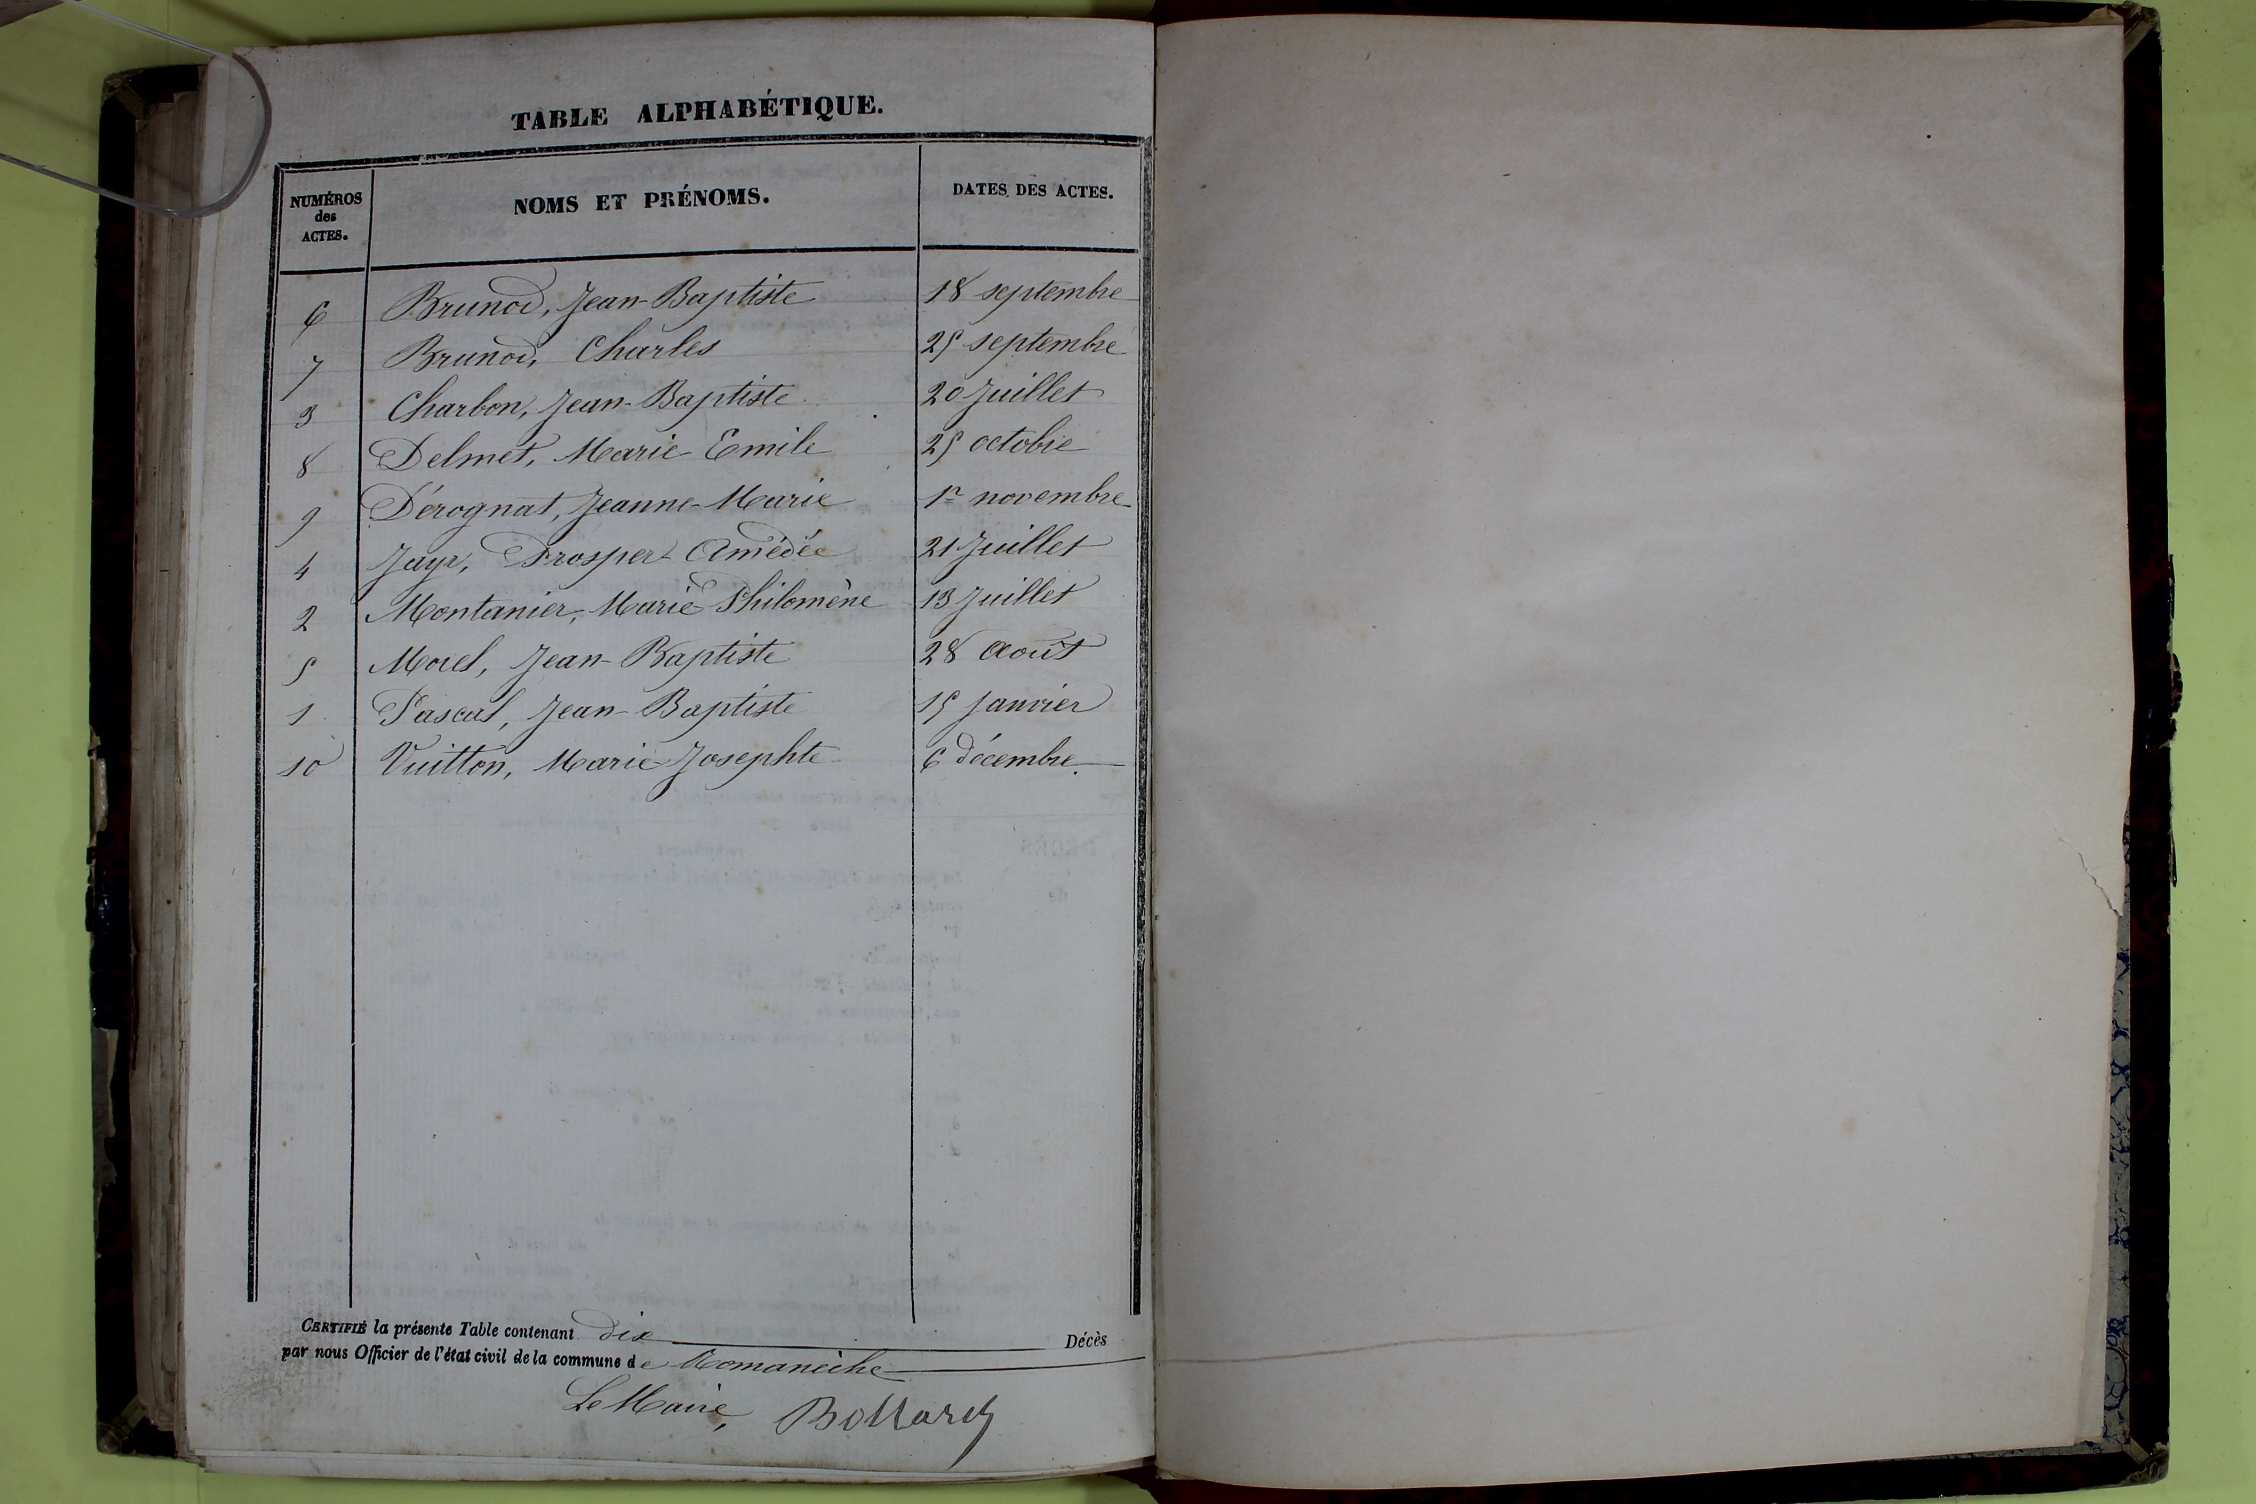 TABLE ALPHABÉTIQUE.
NUMÉROS des ACTES. NOMS ET PRÉNOMS. DATES DES ACTES.
6 Brunod, Jean-Baptiste 18 septembre
7 Brunod, Charles 25 septembre
3 Charbon, Jean-Baptiste 20 Juillet
8 Delmet, Marie Emile 25 octobre
9 Dérognat, Jeanne-Marie 1er novembre
4 Jayr, Prosper Amédée 21 Juillet
2 Montanier, Marie Philomène 13 Juillet
5 Morel, Jean-Baptiste 28 Août
1 Pascal, Jean-Baptiste 15 janvier
10 Vuitton, Marie Josephte 6 décembre.
CERTIFIÉ la présente Table contenant dix Décès
par nous Officier de l'état civil de la commune de Romanèche
Le Maire,